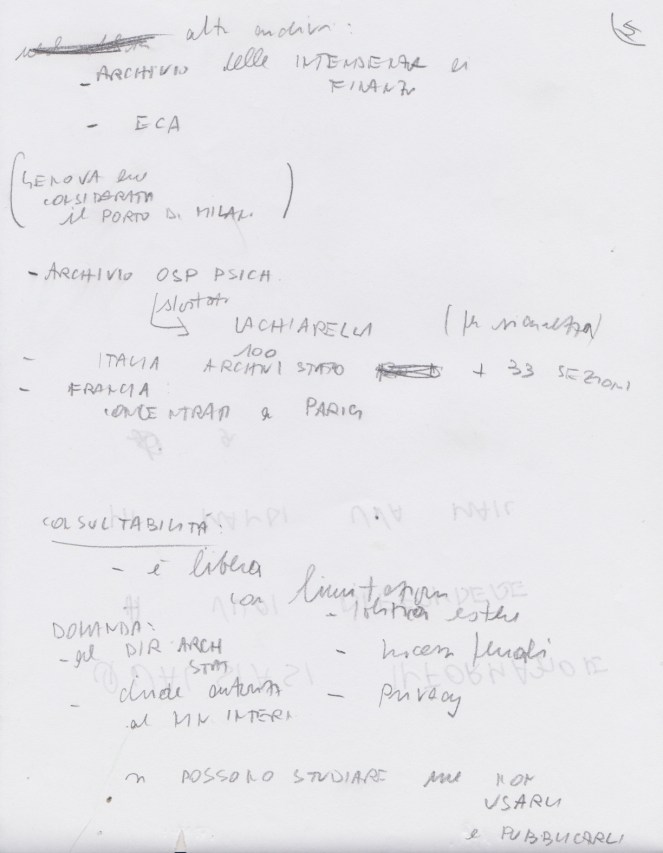 altri archivi:
- ARCHIVIO delle INTENDENZE di
FINANZA
- ECA
(GENOVA era
CONSIDERATA
il PORTO DI MILANO)
- ARCHIVIO OSP PSICH
spostato
LACHIARELLA (per sicurezza)
- ITALIA 100 ARCHIVI STATO + 33 SEZIONI
- FRANCIA
CONCENTRATI a PARIGI
CONSULTABILITÀ:
- è libera
con limitazioni
- politica estera
DOMANDA:
- al DIR ARCH
STAT
- processi penali
- chiede autorizz
al MIN INTERNI
- privacy
si POSSONO STUDIARE ma NON
USARLI
e PUBBLICARLI